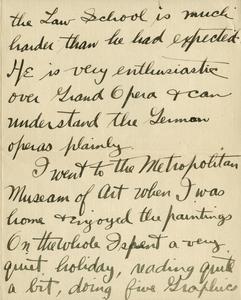 the Law School is much
harder than he had expected.
He is very enthusiastic
over Grand Opera & can
understand the German
operas plainly.
I went to the Metropolitan
Museam of Art when I was
home & enjoyed the paintings
On the whole I spent a very
quiet holiday, reading quite
a bit, doing five Graphics